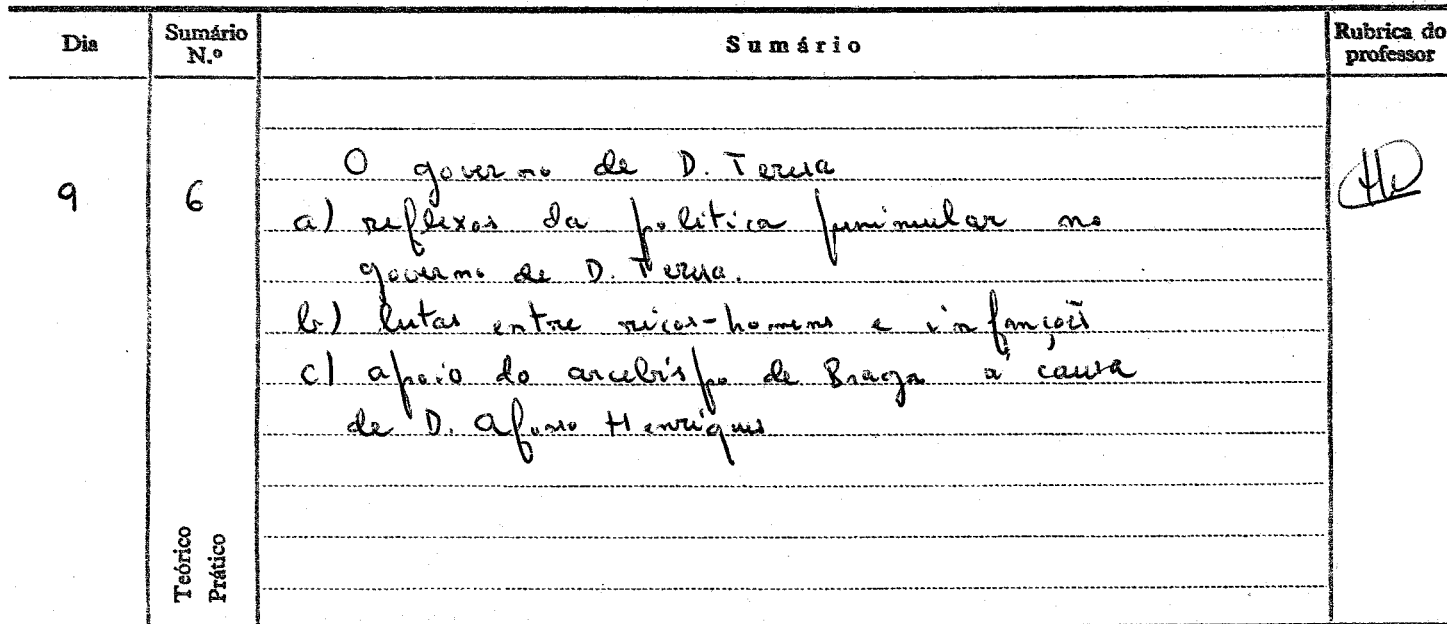 Dia
Sumário N.º
Sumário
Rubrica do professor
9
6
O governo de D. Teresa
a) reflexos da politica peninsular no
governo de D. Teresa.
b) lutas entre ricos-homens e infanções
c) apoio do arcebispo de Braga à causa
de D. Afonso Henriques
Teórico
Prático